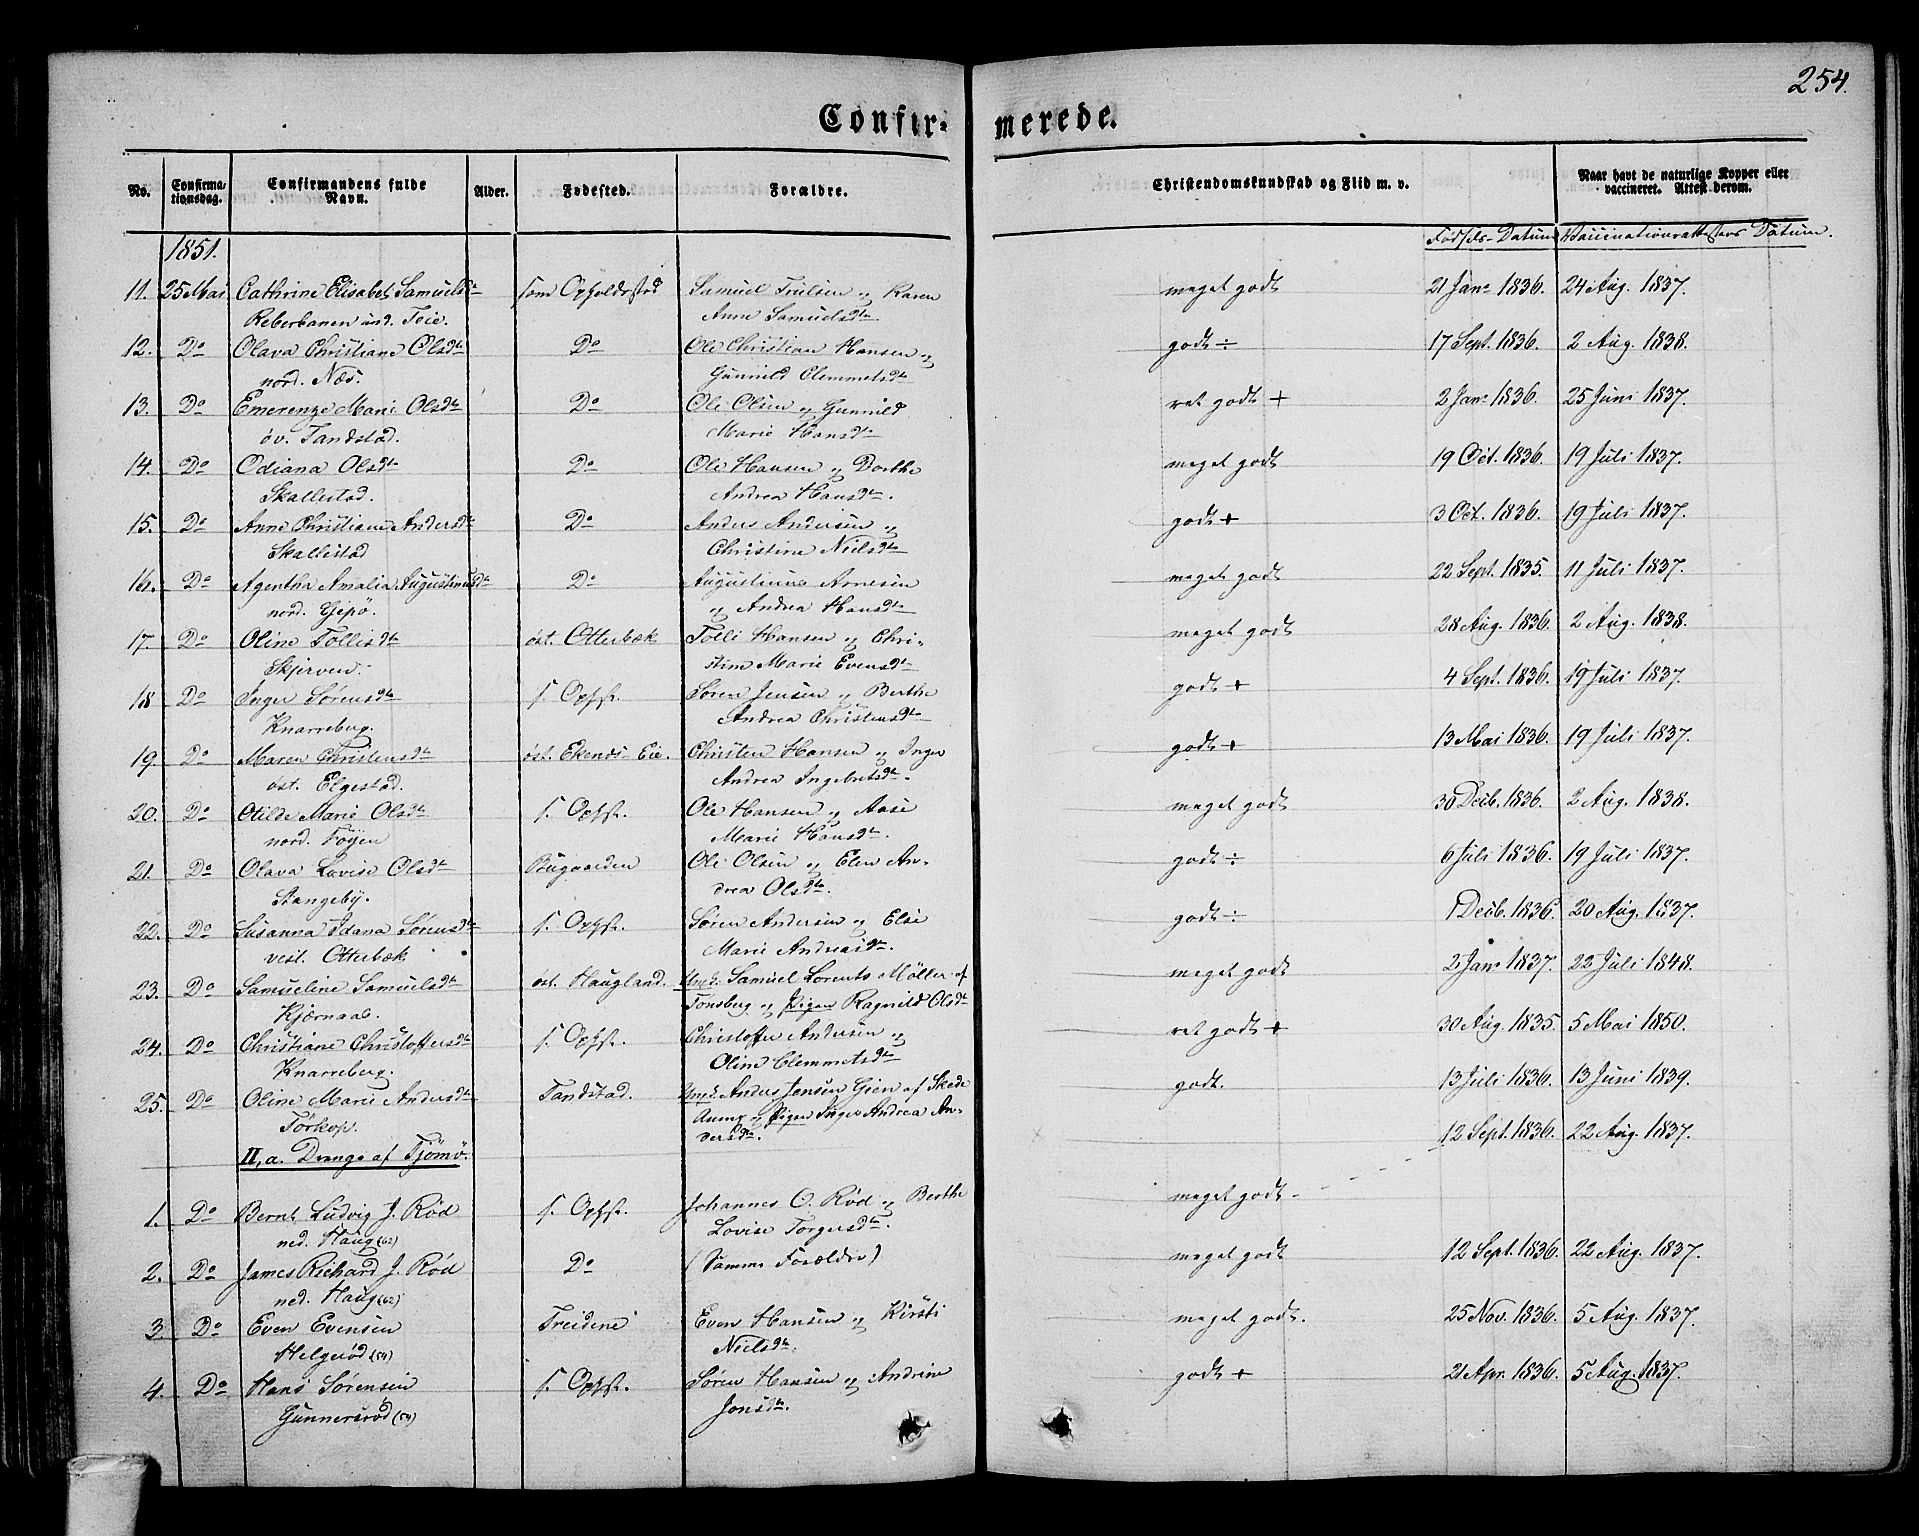 254.
Confir- merede.
No. Confirmationsdag. Confirmandens fulde Navn. Alder. Fødested. Forældre. Christendomskundskab og Flid m. v. Naar havt de naturlige Kopper eller vaccineret. Attest derom.
1851. Fødsels-Datum Vaccinationsattestens Datum.
11. 25 Mai Cathrine Elisabet Samuelsdtr som Opholdssted Samuel Trulsen og Karen meget godt 21 Janr 1836. 24 Aug. 1837.
Reberbanen und. Teie. Anne Samuelsdtr
12. Do Olava Christiane Olsdtr Do Ole Christian Hansen og godt ÷ 17 Sept. 1836. 2 Aug. 1838.
nord. Næs. Gunnild Clemmetsdtr
13. Do Emerenze Marie Olsdtr Do Ole Olsen og Gunnild ret godt + 2 Janr 1836. 25 Juni 1837.
öv. Tandstad. Marie Hansdtr
14. Do Odiana Olsdtr Do Ole Hansen og Dorthe meget godt 19 Oct. 1836. 19 Juli 1837.
Skallestad. Andrea Hansdtr.
15. Do Anne Christiane Andersdtr Do Anders Andersen og godt + 3 Oct. 1836. 19 Juli 1837.
Skallestad Christine Nielsdtr
16. Do Agentha Amalia Augustinusdtr Do Augustinus Arnesen meget godt 22 Sept. 1835. 11 Juli 1837.
nord. Gjepø. og Andrea Hansdtr
17. Do Oline Tollisdtr øst. Otterbæk Tolli Hansen og Chri- meget godt 28 Aug. 1836. 2 Aug. 1838.
Skjerven. stine Marie Evensdtr
18 Do Inger Sørensdtr s. Ophst. Søren Jensen og Berthe godt + 4 Sept. 1836. 19 Juli 1837.
Knarreberg. Andrea Christensdtr
19. Do Maren Christensdtr øst. Ekenæs Eie. Christen Hansen og Inger godt + 13 Mai 1836. 19 Juli 1837.
øst. Elgestad. Andrea Ingebretsdtr.
20. Do Otilde Marie Olsdtr s. Ophst. Ole Hansen og Aase meget godt 30 Decb. 1836. 2 Aug. 1838.
nord. Føyen Marie Hansdtr.
21. Do Olava Lovise Olsdtr Bugaarden Ole Olsen og Elen An- godt ÷ 6 Juli 1836. 19 Juli 1837.
Stangeby. drea Olsdtr.
22. Do Susanna Idana Sørensdtr s. Ophst. Søren Andersen og Else godt ÷ 1 Decb. 1836. 20 Aug. 1837.
vest. Otterbæk Marie Andreasdtr.
23. Do Samueline Samuelsdtr øst. Haugland. Ungk. Samuel Lorents Møller af meget godt 2 Janr 1837. 22 Juli 1848.
Kjærnaas. Tønsberg og Pigen Ragnild Olsdtr
24. Do Christiane Christoffersdtr s. Ophst. Christoffer Andersen og ret godt + 30 Aug. 1835. 5 Mai 1850.
Knarreberg. Oline Clemmetsdtr
25. Do Oline Marie Andersdtr Tandstad. Ungk. Anders Jensen Gien af Skede godt. 13 Juli 1836. 13 Juni 1839.
Tørkop. og Pigen Inger Andrea An-
dersdtr.
II, a. Drenge af Tjømø. 12 Sept. 1836. 22 Aug. 1837.
1. Do Bernt Ludvig J. Rød s. Ophst. Johannes O. Rød og Berthe meget godt
ned. Haug (62) Lovise Torgersdtr.
2. Do James Richard J. Rød Do (Samme Forældre) meget godt 12 Sept. 1836. 22 Aug. 1837.
ned. Haug (62)
3 Do Even Evensen Treidene Even Hansen og Kirsti meget godt. 25 Nov. 1836. 5 Aug. 1837.
Helgerød (54) Nielsdtr.
4. Do Hans Sørensen s. Ophst. Søren Hansen og Andrine godt + 21 Apr. 1836. 5 Aug. 1837.
Gunnersrød (54) Jonsdtr.